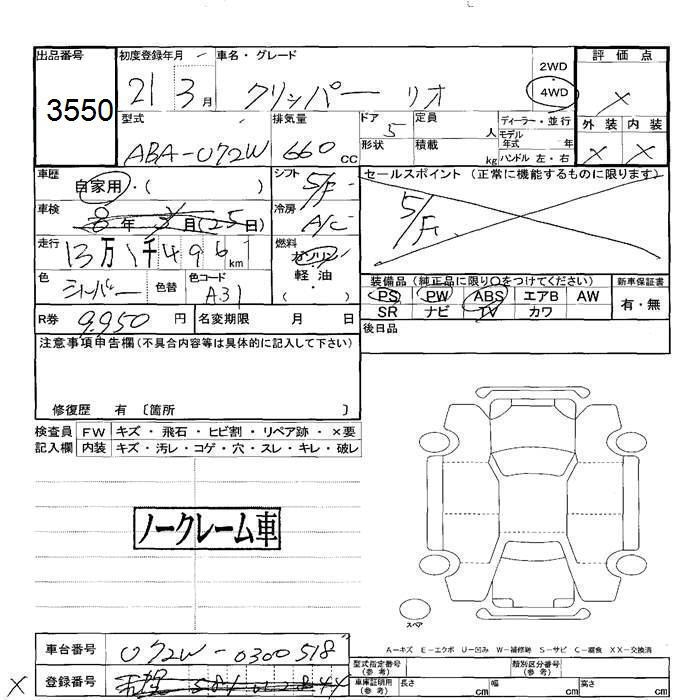 出品番号 初度登録年月 車名・グレード 2WD 評価点
3550 21 3月 クリッパー リオ 4WD ×
型式 排気量 ドア 定員 ディーラー・並行 外装 内装
ABA-U72W 660 CC 5 人 モデル年式 年 × ×
形状 積載 kg ハンドル 左・右
車歴 自家用・( ) シフト 5/F セールスポイント (正常に機能するものに限ります)
車検 8年 月(25日) 冷房 A/C 5/F
走行 13万1千496km 燃料 ガソリン
色 シルバー 色替 色コード A31 軽油 ( )
装備品 (純正品に限り○をつけてください) 新車保証書
PS PW ABS エアB AW 有・無
SR ナビ TV カワ
R券 9,950円 名変期限 月 日 後日品
注意事項申告欄(不具合内容等は具体的に記入して下さい)
修復歴 有 〔箇所 〕
検査員 FW キズ・飛石・ヒビ割・リペア跡・×要
記入欄 内装 キズ・汚レ・コゲ・穴・スレ・キレ・破レ
ノークレーム車
スペア
A-キズ E-エクボ U-凹み W-補修跡 S-サビ C-腐食 XX-交換済
車台番号 U72W-0300518
型式指定番号(参考) 類別区分番号(参考)
× 登録番号
車庫証明用(参考) 長さ cm 幅 cm 高さ cm